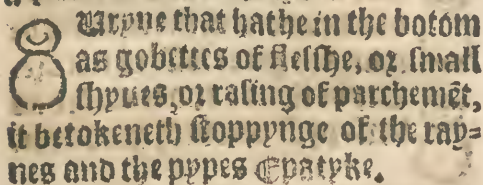 Uryne that hathe in the botom
as gobettes of flesshe, or small
shyues, or rasing of parchemēt,
it betokeneth stoppynge of the ray-
nes and the pypes Epatyke.